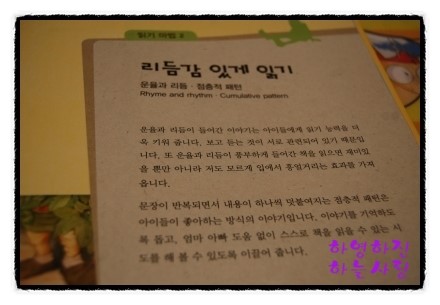 읽기 마법 2
리듬감 있게 읽기
운율과 리듬 · 점층적 패턴
Rhyme and rhythm · Cumulative pattern
운율과 리듬이 들어간 이야기는 아이들에게 읽기 능력을 더
욱 키워 줍니다. 보고 듣는 것이 서로 관련되어 있기 때문입
니다. 또 운율과 리듬이 풍부하게 들어간 책을 읽으면 재미있
을 뿐만 아니라 저도 모르게 입에서 흥얼거리는 효과를 가져
옵니다.
문장이 반복되면서 내용이 하나씩 덧붙여지는 점층적 패턴은
아이들이 좋아하는 방식의 이야기입니다. 이야기를 기억하도
록 돕고, 엄마 아빠 도움 없이 스스로 책을 읽을 수 있는 시
도를 해 볼 수 있도록 이끌어 줍니다.